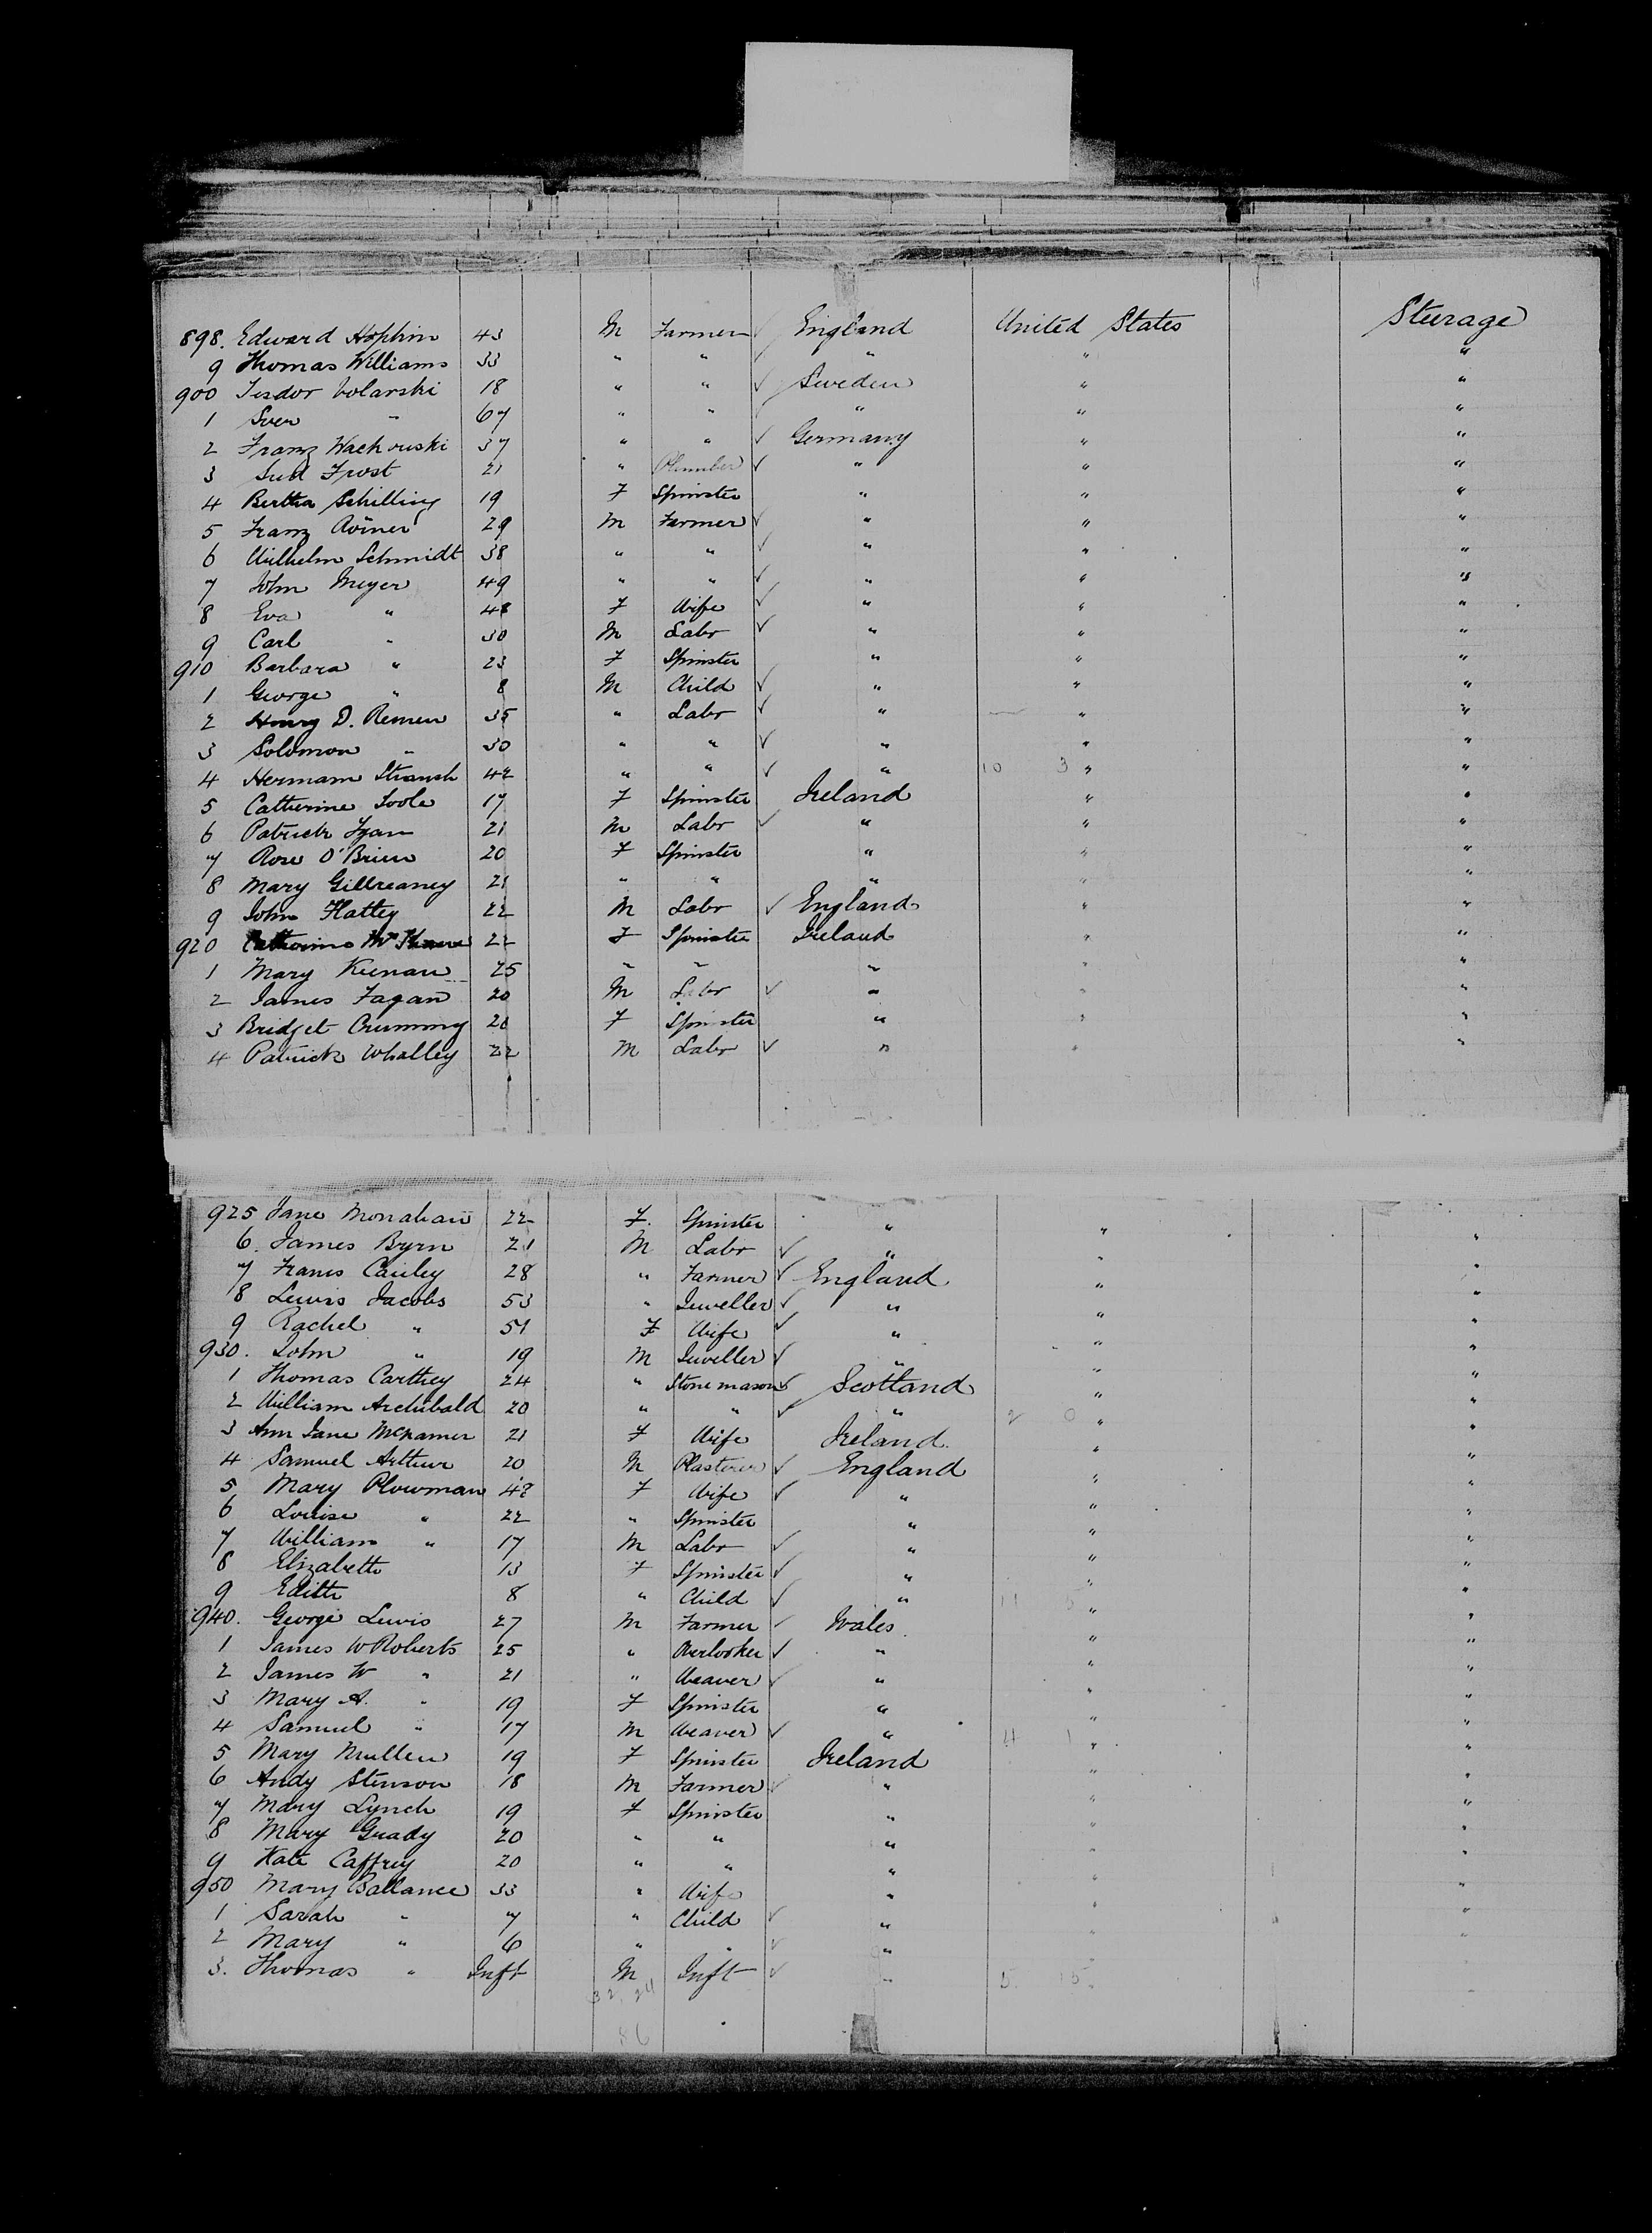 898. Edward Hopkin 43 M Farmer ✓ England United States Steerage
9 Thomas Williams 33 " " ✓ " " "
900 Isidor Volarski 18 " " ✓ Sweden " "
1 Sven " 67 " " ✓ " " "
2 Franz Wachouski 37 " " ✓ Germany " "
3 Frost 21 " Plumber ✓ " " "
4 Bertha Schilling 19 F Spinster " " "
5 Franz Römer 29 M Farmer ✓ " " "
6 Wilhelm Schmidt 38 " " ✓ " " "
7 John Meyer 49 " " ✓ " " "
8 Eva " 48 F Wife ✓ " " "
9 Carl " 30 M Labr ✓ " " "
910 Barbara " 23 F Spinster " " "
1 George " 8 M Child ✓ " " "
2 Henry D. Remen 35 " Labr ✓ " " "
3 Solomon " 30 " " ✓ " " "
4 Hermann 42 " " ✓ " 10 3 " "
5 Catherine Toole 17 F Spinster Ireland " "
6 Patrick 21 M Labr ✓ " " "
7 Rose O'Brien 20 F Spinster " " "
8 Mary Gillreaney 21 " " " " "
9 John Flattey 22 M Labr ✓ England " "
920 Catherine 22 F Spinster Ireland " "
1 Mary Keenan 25 " " " " "
2 James Fagan 20 M Labr ✓ " " "
3 Bridget Crummy 20 F Spinster " " "
4 Patrick Whalley 22 M Labr ✓ " " "
925 Jane Monahan 22 F. Spinster " " "
6. James Byrn 21 M Labr ✓ " " "
7 Franis Cauley 28 " Farmer ✓ England " "
8 Lewis Jacobs 53 " Jeweller ✓ " " "
9 Rachel " 51 F Wife ✓ " " "
930. John " 19 M Jeweller ✓ " " "
1 Thomas Carthey 24 " Stone mason ✓ Scotland " "
2 William Archibald 20 " " ✓ " 2 0 " "
3 Ann Jane McNamer 21 F Wife Ireland. " "
4 Samuel Arthur 20 M Plasterer ✓ England " "
5 Mary Plowman 48 F Wife ✓ " " "
6 Louise " 22 " Spinster " " "
7 William " 17 M Labr ✓ " " "
8 Elizabeth 13 F Spinster ✓ " " "
9 Edith 8 " Child ✓ " 11 5 " "
940. George Lewis 27 M Farmer ✓ Wales " "
1 James W Roberts 25 " Overlooker ✓ " " "
2 James W " 21 " Weaver ✓ " " "
3 Mary A. " 19 F Spinster " " "
4 Samuel " 17 M Weaver ✓ " 4 1 " "
5 Mary Mullen 19 F Spinster Ireland " "
6 Andy Stinson 18 M Farmer ✓ " " "
7 Mary Lynch 19 F Spinster " " "
8 Mary Grady 20 " " " " "
9 Kate Caffrey 20 " " " " "
950 Mary Ballance 33 " Wife " " "
1 Sarah " 7 " Child ✓ " " "
2 Mary " 6 " " ✓ " " "
3. Thomas " Inft M Inft ✓ " 5. 15. "
32. 24